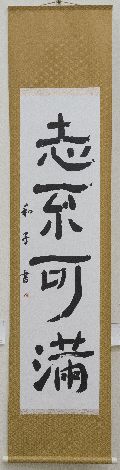 志不可満
和子書